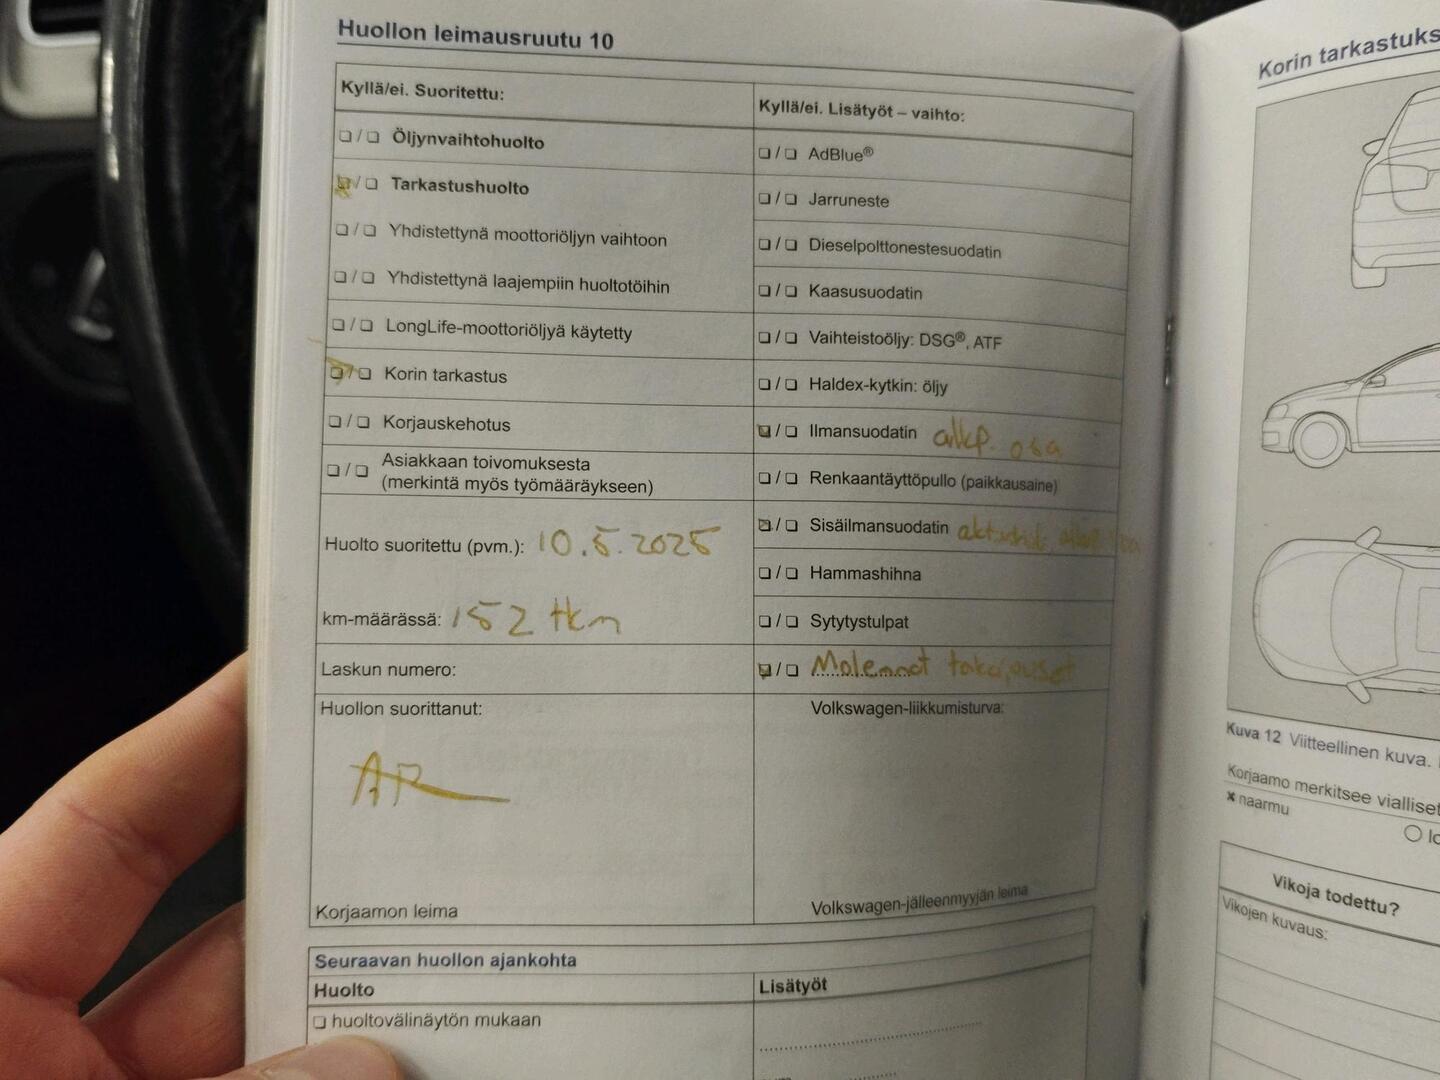 Huollon leimausruutu 10
Kyllä/ei. Suoritettu:
❏ / ❏ Öljynvaihtohuolto
❏ / ❏ Tarkastushuolto
❏ / ❏ Yhdistettynä moottoriöljyn vaihtoon
❏ / ❏ Yhdistettynä laajempiin huoltotöihin
❏ / ❏ LongLife-moottoriöljyä käytetty
❏ / ❏ Korin tarkastus
❏ / ❏ Korjauskehotus
❏ / ❏ Asiakkaan toivomuksesta
(merkintä myös työmääräykseen)
Huolto suoritettu (pvm.): 10.5.2025
km-määrässä: 152 tkm
Laskun numero:
Huollon suorittanut:
AR
Korjaamon leima
Kyllä/ei. Lisätyöt – vaihto:
❏ / ❏ AdBlue®
❏ / ❏ Jarruneste
❏ / ❏ Dieselpolttonestesuodatin
❏ / ❏ Kaasusuodatin
❏ / ❏ Vaihteistoöljy: DSG®, ATF
❏ / ❏ Haldex-kytkin: öljy
❏ / ❏ Ilmansuodatin alkp. osa
❏ / ❏ Renkaantäyttöpullo (paikkausaine)
❏ / ❏ Sisäilmansuodatin
❏ / ❏ Hammashihna
❏ / ❏ Sytytystulpat
❏ / ❏ Molemmat takajouset
Volkswagen-liikkumisturva:
Volkswagen-jälleenmyyjän leima
Seuraavan huollon ajankohta
Huolto
❏ huoltovälinäytön mukaan
Lisätyöt
Korin tarkastuks
Kuva 12 Viitteellinen kuva.
Korjaamo merkitsee vialliset
× naarmu
Vikoja todettu?
Vikojen kuvaus: